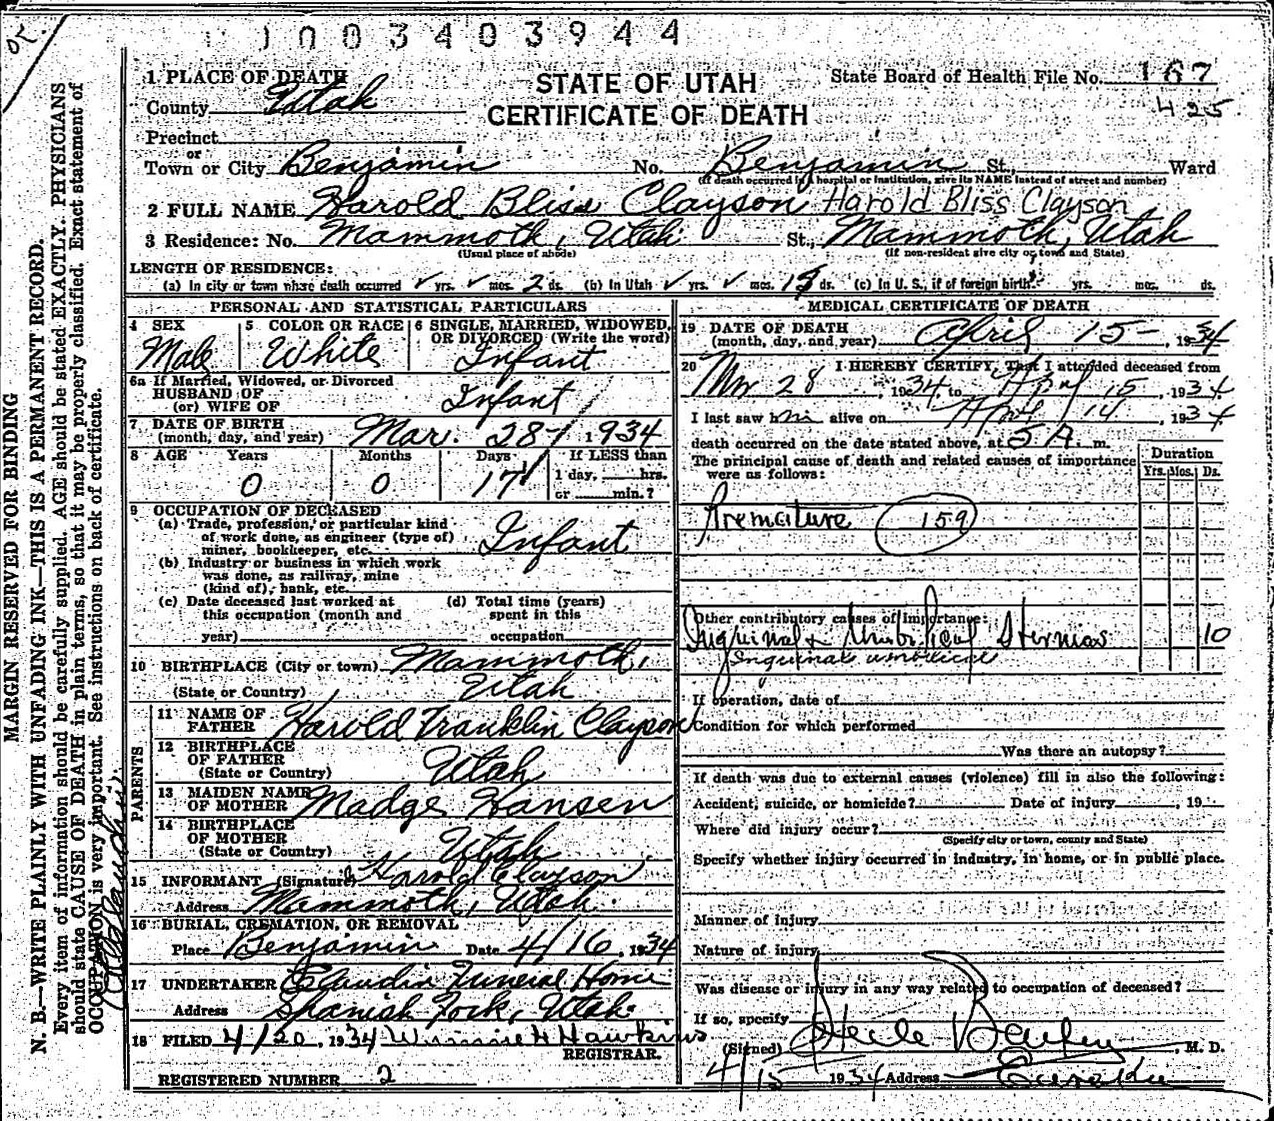 1003403944
1 PLACE OF DEATH
STATE OF UTAH
CERTIFICATE OF DEATH
State Board of Health File No. 167
425
County Utah
Precinct
or
Town or City Benjamin No. Benjamin St., Ward
(If death occurred in a hospital or institution, give its NAME instead of street and number)
2 FULL NAME Harold Bliss Clayson Harold Bliss Clayson
3 Residence: No. Mammoth, Utah St., Mammoth, Utah
(Usual place of abode) (If non-resident give city or town and State)
LENGTH OF RESIDENCE:
(a) In city or town where death occurred yrs. mos. 2 ds. (b) In Utah yrs. mos. ds. (c) In U. S., if of foreign birth? yrs. mos. ds.
PERSONAL AND STATISTICAL PARTICULARS
4 SEX Male
5 COLOR OR RACE White
6 SINGLE, MARRIED, WIDOWED, OR DIVORCED (Write the word) Infant
6a If Married, Widowed, or Divorced
HUSBAND OF
(or) WIFE OF Infant
7 DATE OF BIRTH
(month, day, and year) Mar. 28- 1934
8 AGE Years Months Days If LESS than
1 day, hrs.
or min.?
0 0 17
9 OCCUPATION OF DECEASED
(a) Trade, profession, or particular kind
of work done, as engineer (type of)
miner, bookkeeper, etc. Infant
(b) Industry or business in which work
was done, as railway, mine
(kind of), bank, etc.
(c) Date deceased last worked at
this occupation (month and
year)
(d) Total time (years)
spent in this
occupation
10 BIRTHPLACE (City or town) Mammoth,
(State or Country) Utah
PARENTS
11 NAME OF
FATHER Harold Franklin Clayson
12 BIRTHPLACE
OF FATHER
(State or Country) Utah
13 MAIDEN NAME
OF MOTHER Madge Hansen
14 BIRTHPLACE
OF MOTHER
(State or Country) Utah
15 INFORMANT (Signature) Harold Clayson
Address Mammoth, Utah
16 BURIAL, CREMATION, OR REMOVAL
Place Benjamin Date 4/16, 1934
17 UNDERTAKER Claudin Funeral Home
Address Spanish Fork, Utah
18 FILED 4/20, 1934 Winnie H Hawkins
REGISTRAR.
REGISTERED NUMBER 2
MEDICAL CERTIFICATE OF DEATH
19 DATE OF DEATH
(month, day, and year) April 15-, 1934
20 I HEREBY CERTIFY, That I attended deceased from
Mr 28, 1934, to April 15, 1934
I last saw him alive on April 14, 1934
death occurred on the date stated above, at 5 A. m.
The principal cause of death and related causes of importance
were as follows:
Duration
Yrs. Mos. Ds.
Premature 159
Other contributory causes of importance:
Inguinal & Umbilical Hernias 10
Inguinal umbilical
If operation, date of
Condition for which performed
Was there an autopsy?
If death was due to external causes (violence) fill in also the following:
Accident, suicide, or homicide? Date of injury, 19
Where did injury occur?
(Specify city or town, county and State)
Specify whether injury occurred in industry, in home, or in public place.
Manner of injury
Nature of injury
Was disease or injury in any way related to occupation of deceased?
If so, specify
(Signed) , M. D.
4/15 1934 Address Eureka
MARGIN RESERVED FOR BINDING
N. B.—WRITE PLAINLY WITH UNFADING INK—THIS IS A PERMANENT RECORD.
Every item of information should be carefully supplied. AGE should be stated EXACTLY. PHYSICIANS
should state CAUSE OF DEATH in plain terms, so that it may be properly classified. Exact statement of
OCCUPATION is very important. See instructions on back of certificate.